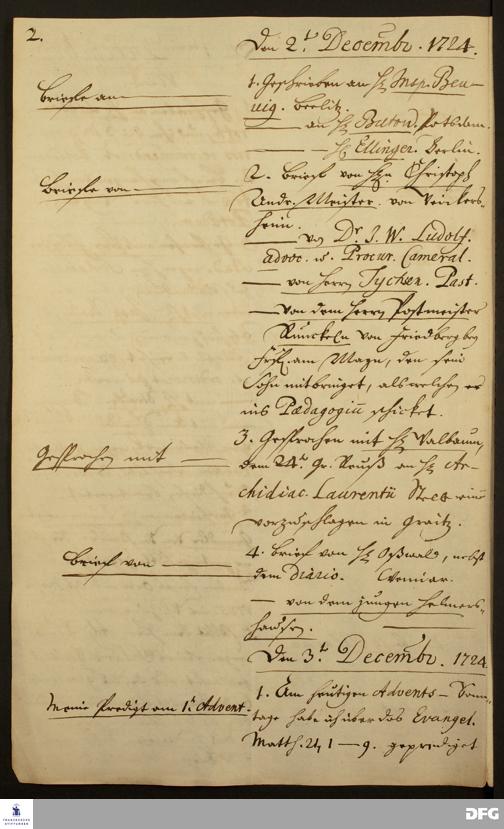 2.
Den 2.t Decembr. 1724.
Briefe an
1. Geschrieben an H. Insp. Beu-
uig. Beelitz.
— an H. Buton. Potsdam.
— H. Ellinger. Berlin.
Briefe von
2. Brief von H. Christoph
Andr. Meister. von Reickers-
heim.
— von Dr. J. W. Ludolf.
advoc. u. Procur. Cameral.
— von Herrn Tychsen. Past.
— von dem Herrn Postmeister
Runckeln von Friedberg bey
am Mayn, den sein
Sohn mitbringet, als welchen er
ins Pædagogiū schicket.
Gesprochen mit
3. Gesprochen mit H. Walbaum,
dem 24.t Gr. Reuß an H. Ar-
chidiac. Laurentii Stelle einen
vorzuschlagen in Graitz.
Brief von
4. Brief von H. Oßwald, nebst
dem Diario. Weimar.
— von dem jungen Helmers-
hausen.
Den 3.t Decembr. 1724.
Meine Predigt am 1.t Advent.
1. Am heutigen Advents-Sonn-
tage habe ich über das Evangel.
Matth. 21, 1—9. geprediget
FRANCKESCHE
STIFTUNGEN
DFG